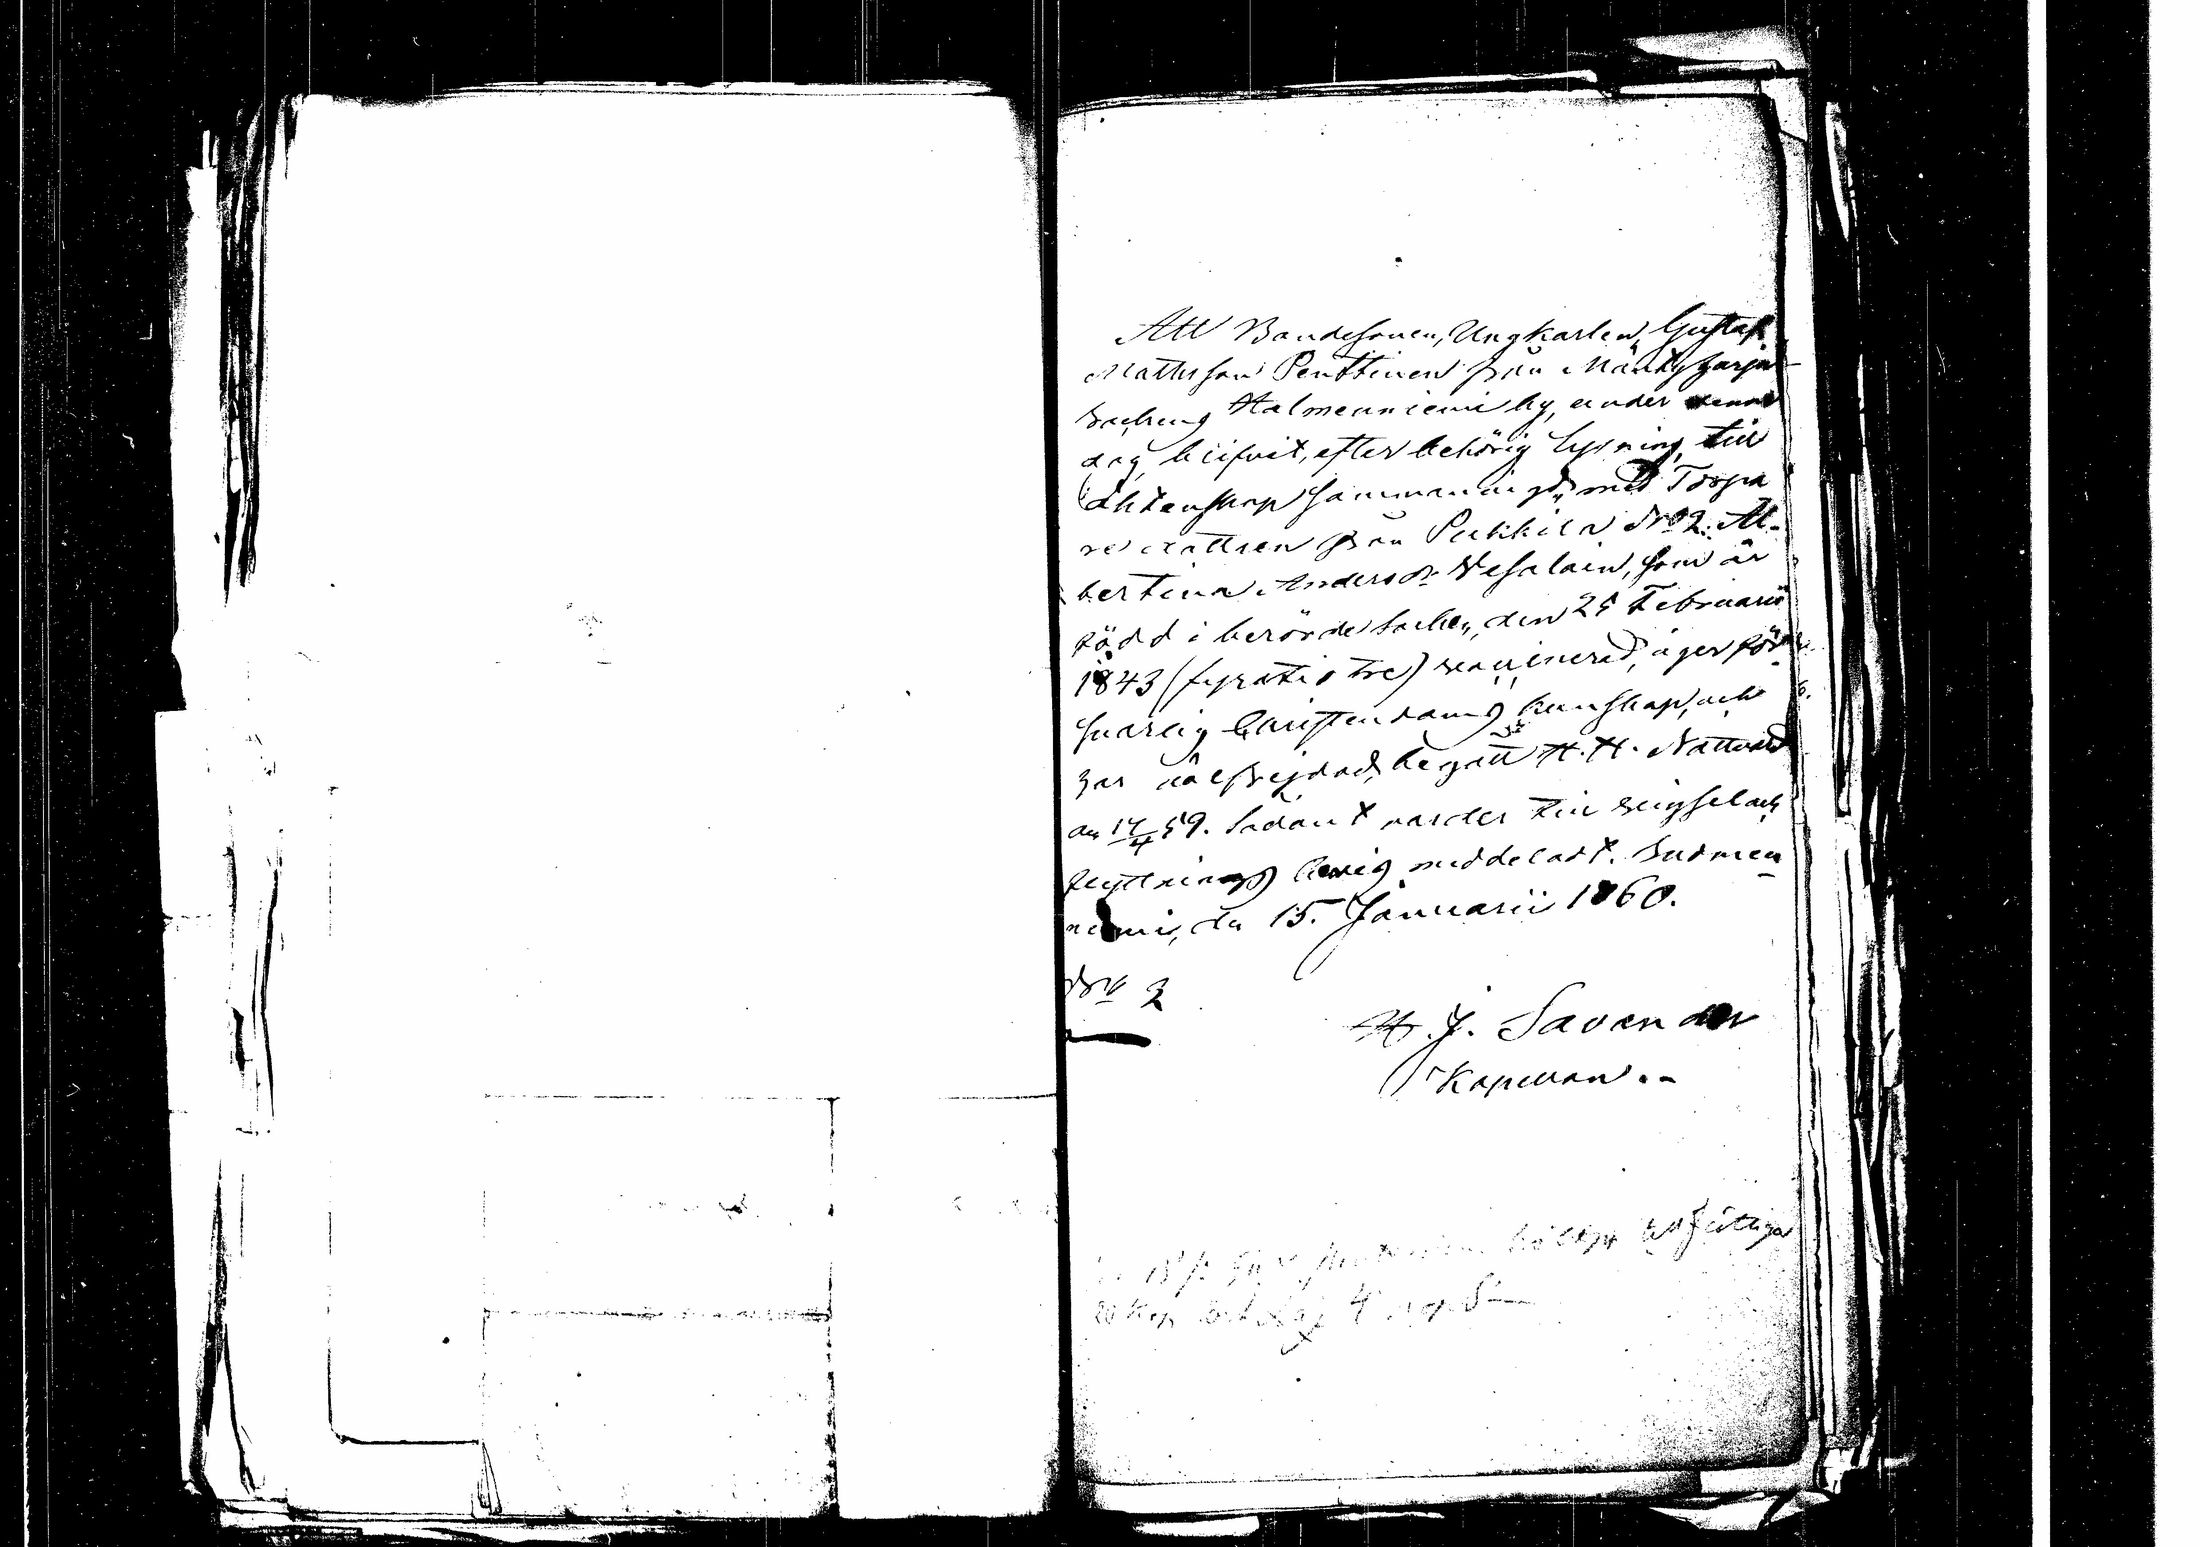 Att Bondesonen, Ungkarlen, Gustaf
Mattsson Penttinen från Mäntyharju
Sockens Halmenniemi by, under denna
dag blifvit, efter behörig lysning, till
äktenskap sammanvigd, med Torpa
re dottren från Pukkila No 2. Al-
bertina Andersdr Vesalain, som är
född i berörde Socken, den 25 Februarii
1843 (fyratio tre) vaccinerad, äger för
svarlig Christendoms kunskap, och
har välfrejdad, begått H. H. Nattvard
den 17/4 59. Sådant varder till vigsel och
flyttnings bevis meddeladt. Suomen
niemi, den 15. Januarii 1860.
No 2
H. J. Savander
Kapellan.